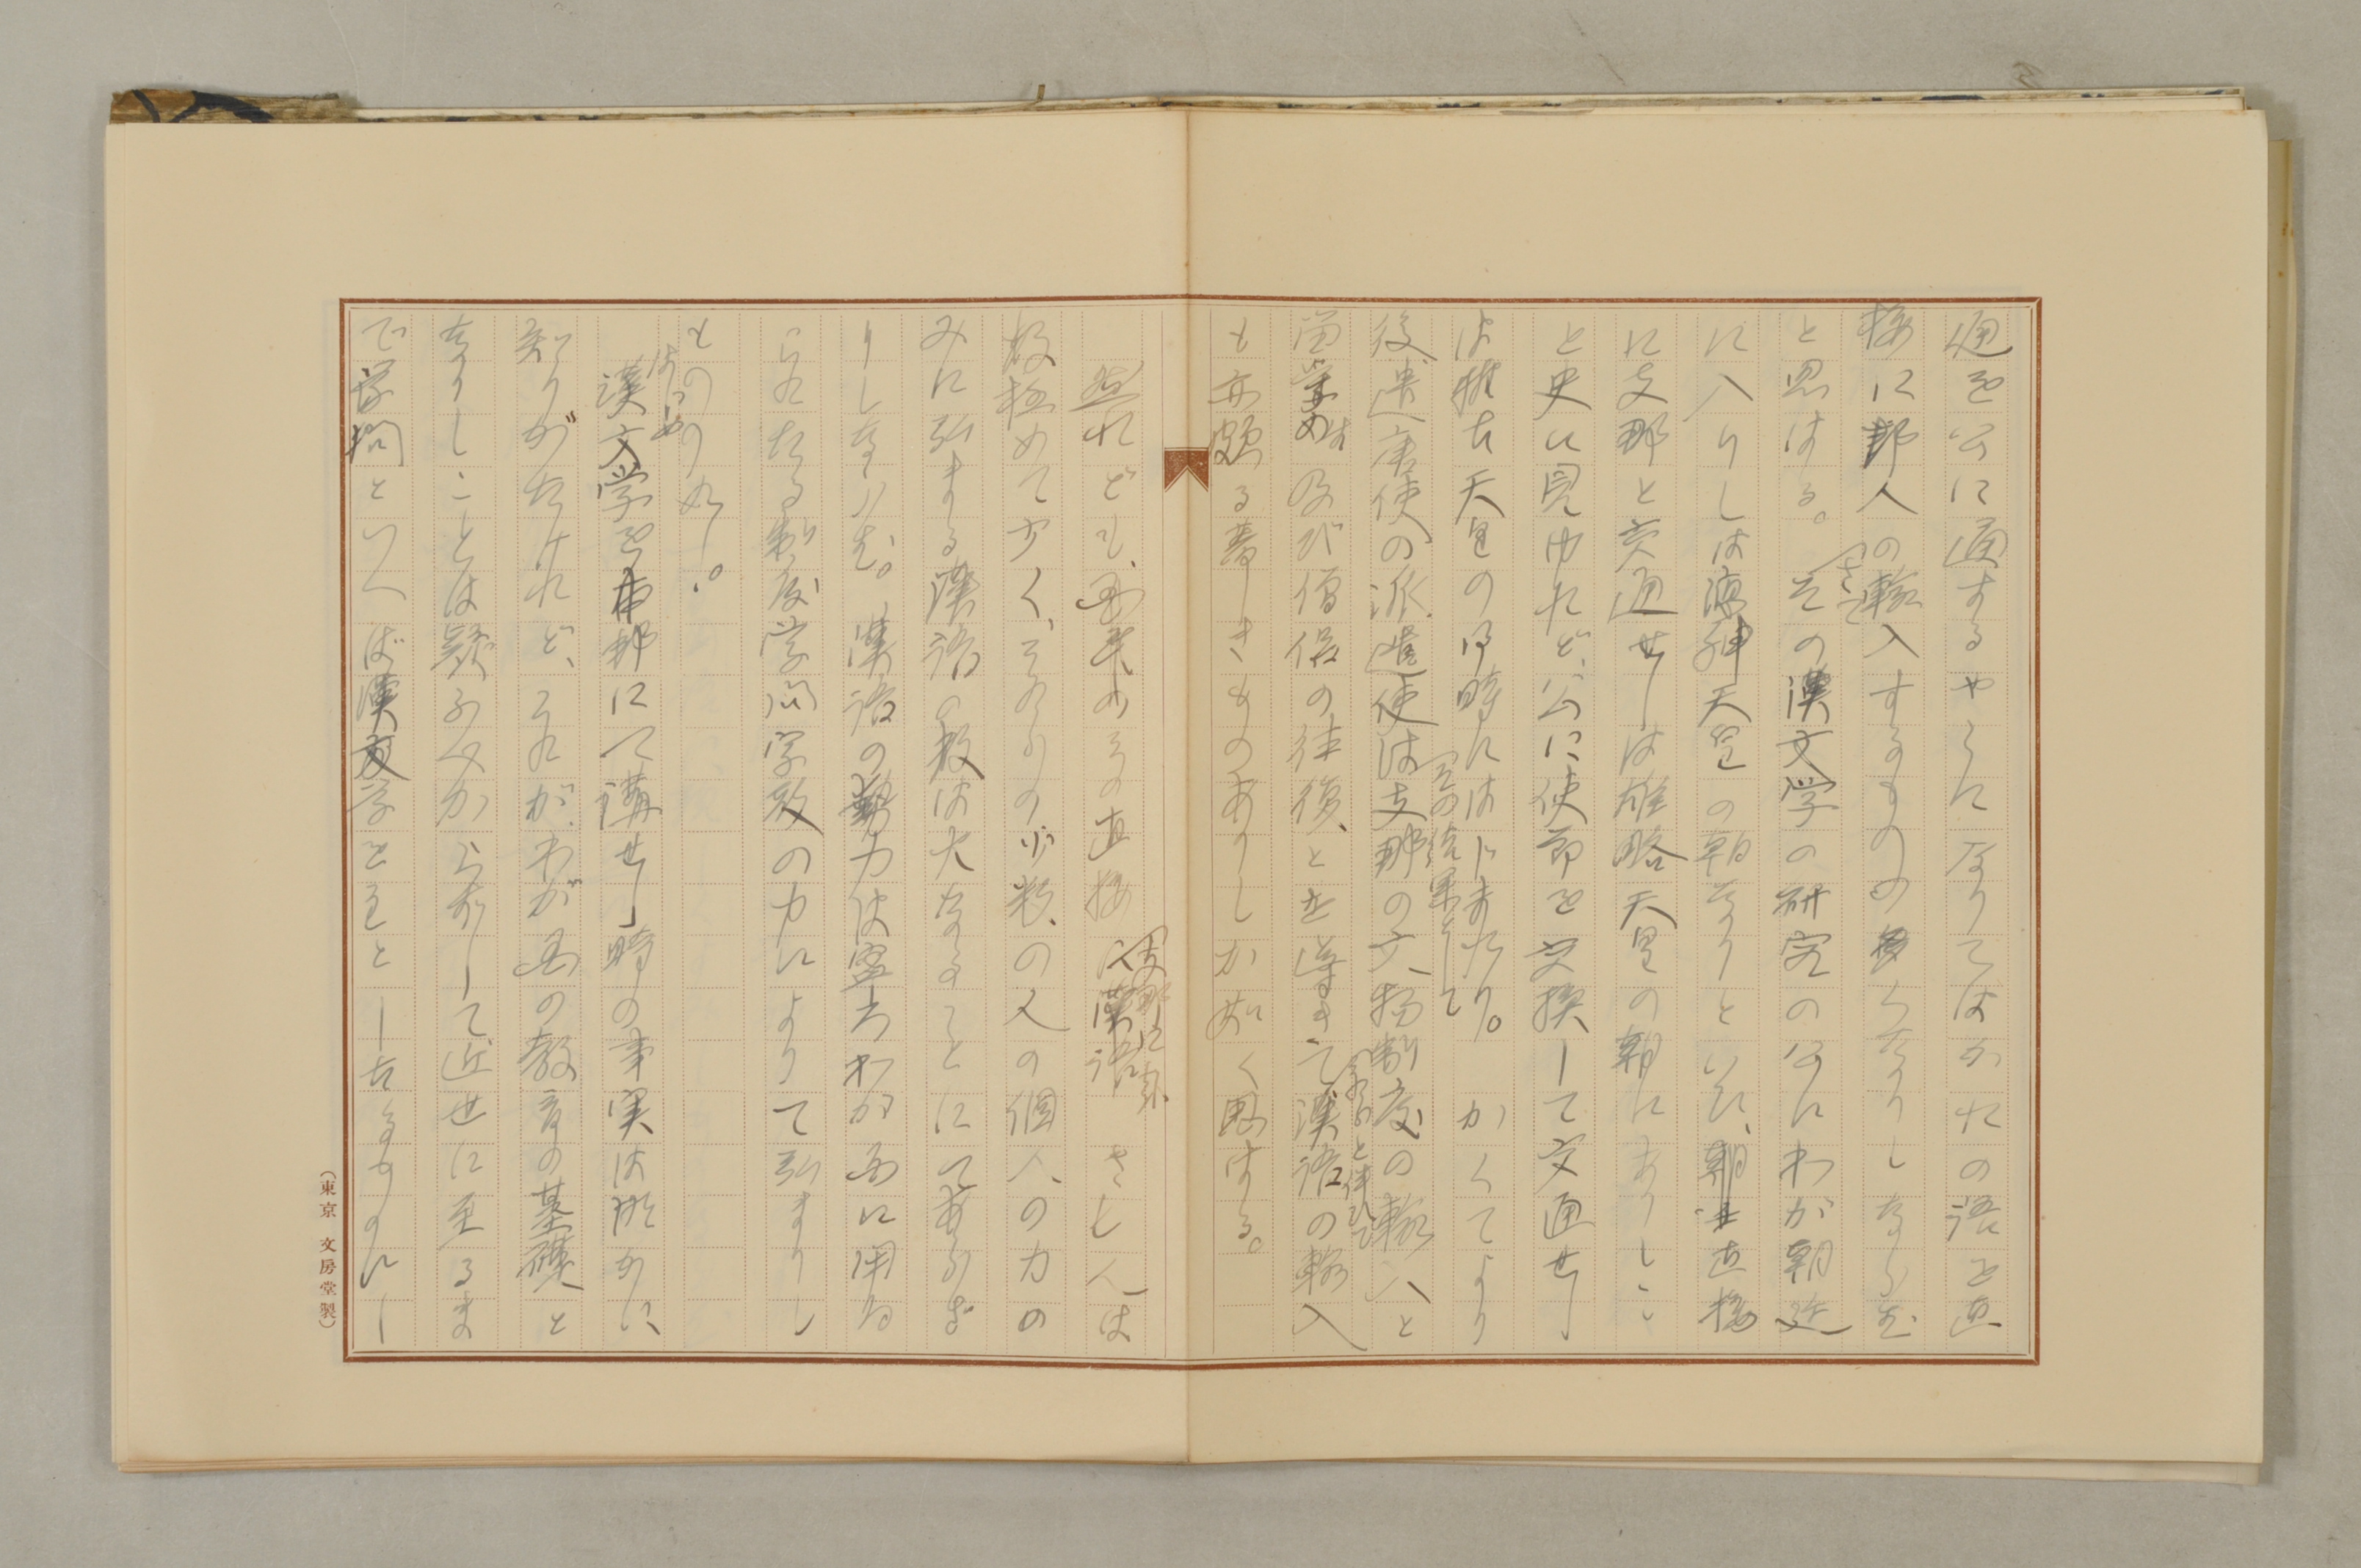 通を公に通するやうになりてはかたの語を直
接に邦人の輸入するものの多くなりしならむ
と思はる。その漢文学の研究の公にわが朝廷
に入りしは應神天皇の朝なりといひ、朝廷直接
に支那と交通せしは雄略天皇の朝にありしこ
と史に見ゆれど、公に使節を交換して交通せし
は推古天皇の時にはじまれり。かくてより
後遣唐使の派遣使は支那の文物制度の輸入と
その結果として
留学生及び僧侶の往復、とを導きて漢語の輸入
それと伴ひて
も亦頗る著しきものありしか如く思はる。
然れども、当年のその直接に漢語 さし人は
支那に入
故極めて少く、それらの少数の人の個人の力の
みに弘まる漢語の数は大なることにてあらざ
りしならむ。漢語の勢力は盛にわが国に用ゐ
られたる制度学問宗教の力によりて弘まりし
ものの如し。
漢文学を本邦にて講ぜし時の事実は明かに
はじめ
知りがたけれど、それが、わが国の教育の基礎と
なりしことは疑ふべからずして近世に至るま
で学問といへば漢文学を主としたるものにし
(東京 文房堂製)